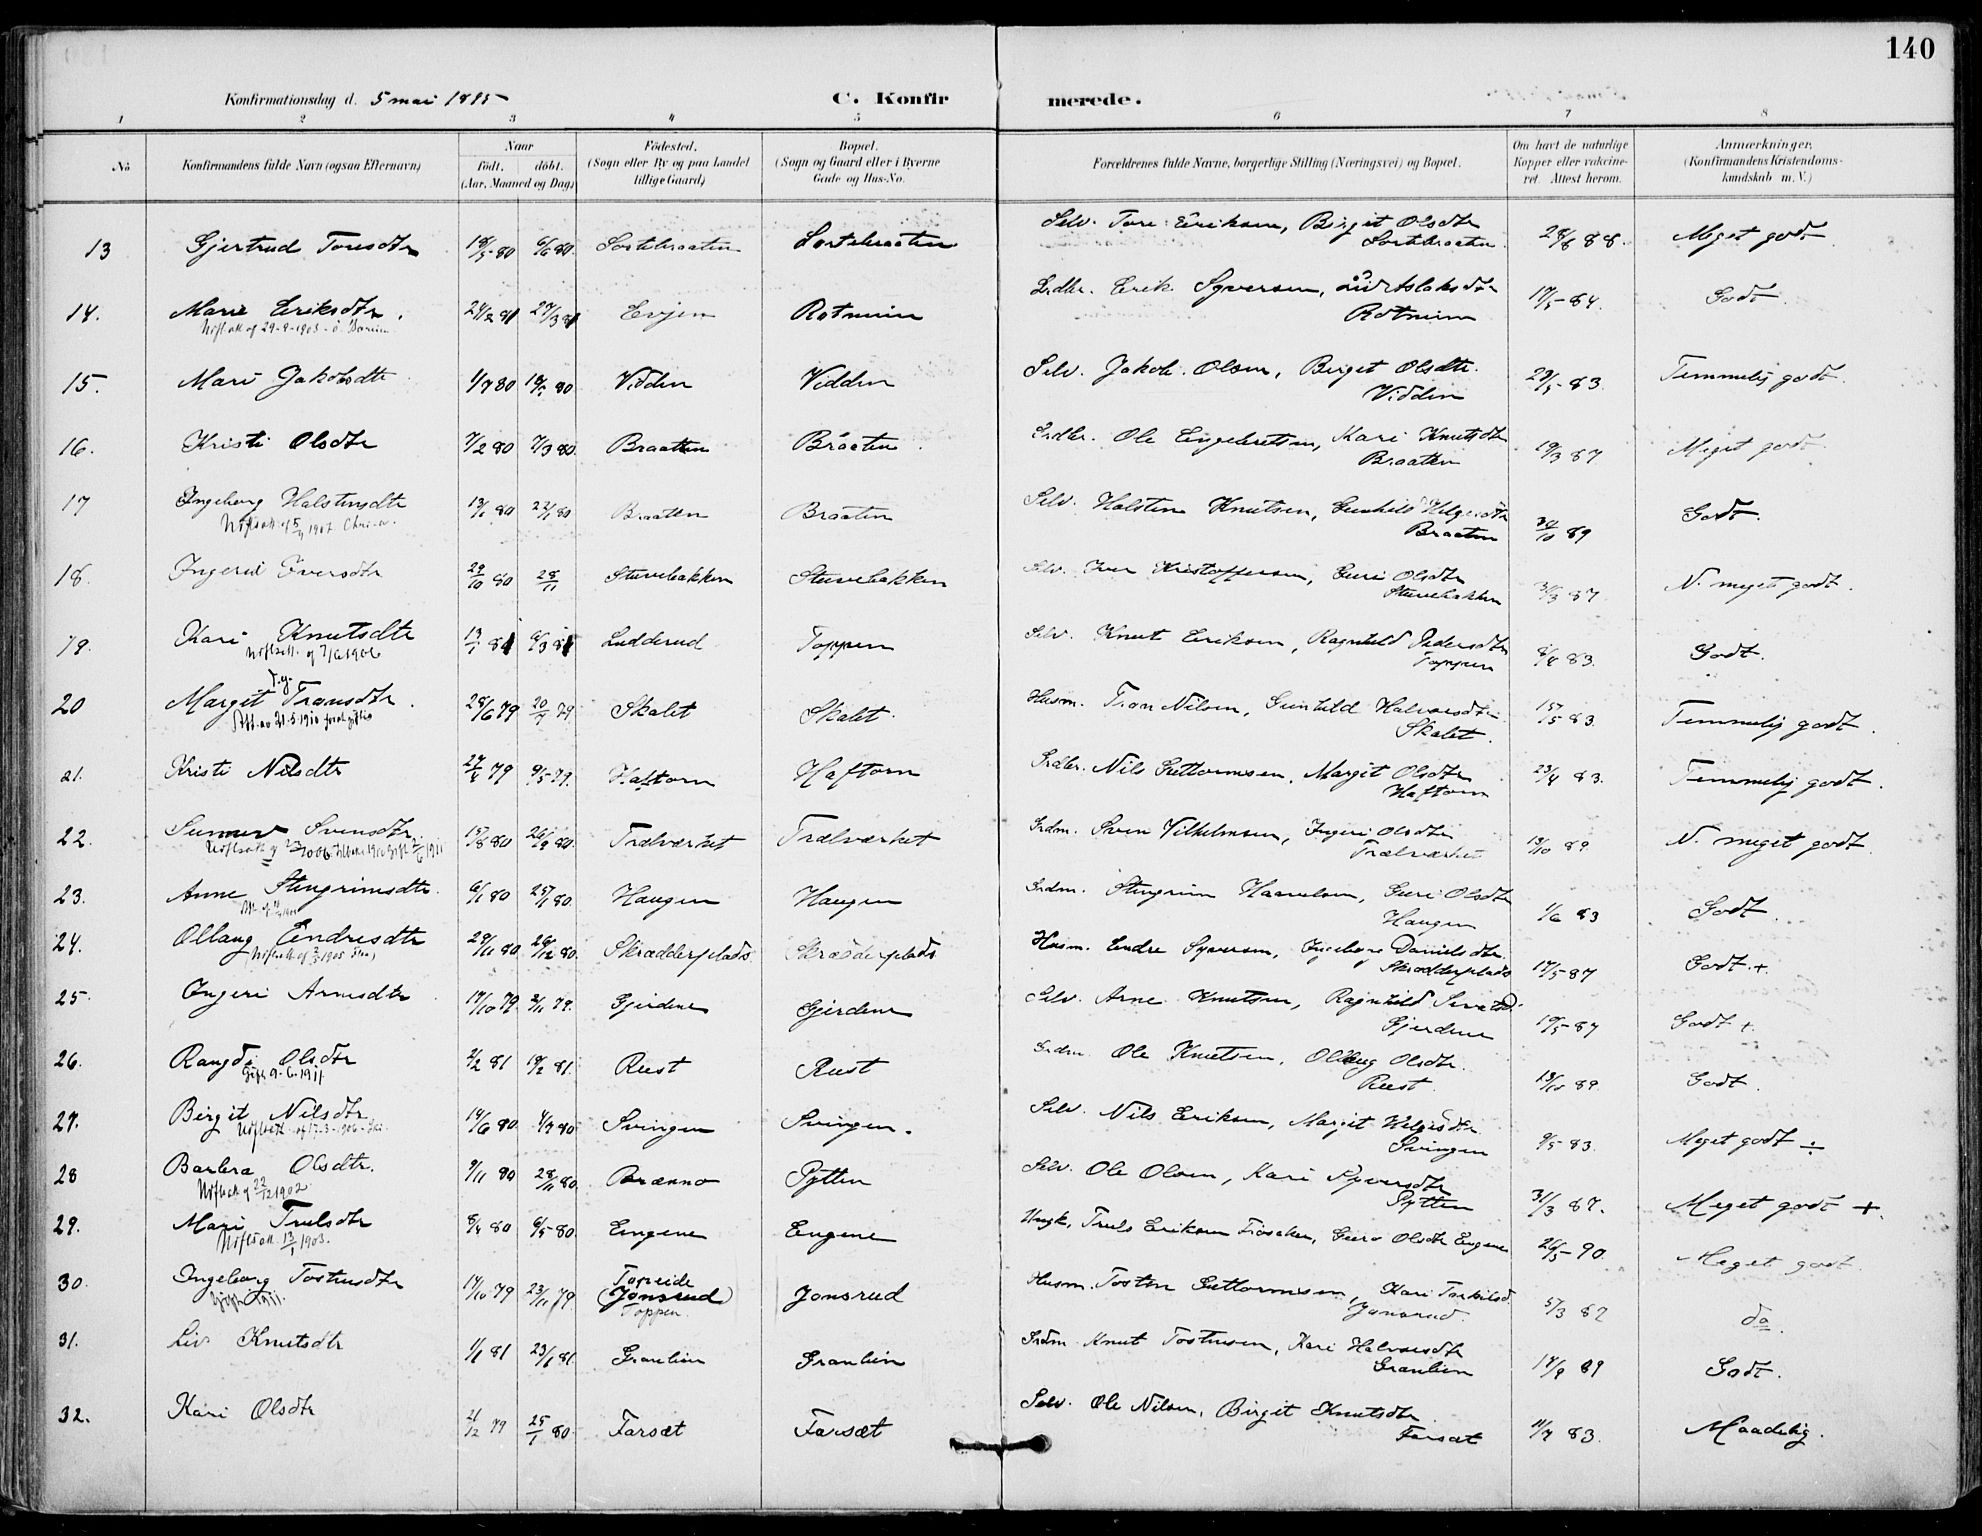 140
Konfirmationsdag d. 5 mai 1895
C. Konfirmerede.
1 2 3 4 5 6 7 8
No
Konfirmandens fulde Navn (ogsaa Efternavn)
Naar
født. døbt.
(Aar, Maaned og Dag)
Fødested.
(Sogn eller By og paa Landet
tillige Gaard)
Bopæl.
(Sogn og Gaard eller i Byerne
Gade og Hus-No.
Forældrenes fulde Navne, borgerlige Stilling (Næringsvei) og Bopæl.
Om havt de naturlige
Kopper eller vakcine-
ret. Attest herom.
Anmærkninger,
(Konfirmandens Kristendoms-
kundskab m. V.)
13 Gjertrud Toresdtr 18/5 80 6/6 80. Sortebraaten Sortebraaten Selv. Tore Eriksen, Birgit Olsdtr Sortebraaten. 28/6 88. Meget godt
14. Marie Eriksdtr. 24/2 81 27/3 81 Evjen Rotneim Erik Syversen, Rotneim 17/5-84. Godt.
15. Mari Jakobsdtr 1/7 80 Vidden Vidden Selv. Jakob Olsen, Birgit Olsdtr. Vidden 29/5-83. Temmelig godt.
16. Kristi Olsdtr 7/2 80 7/3 80. Braatten Braaten Ole Engebretsen, Kari Knutsdtr Braatten 19/3 87 Meget godt
17 Ingeborg Halstensdtr 1907 Braatten Braaten Selv. Halsten Knutsen, Gunhild Helgesdtr Braaten 30/10 89 Godt.
18. Ingerid Iversdtr 29/10 80 28/11 Stuvebakken Stuvebakken Selv. Iver Kristoffersen, Guri Olsdtr Stuvebakken 31/3 87. N. meget godt.
19. Kari Knutsdtr 7/6 1906 13/1 81 6/3 81 Ludderud Toppen Selv. Knut Eriksen, Ragnhild Pedersdtr Toppen 83. Godt.
20 Margit Tronsdtr. 28/6 79 20/7 79 Skalet Skalet. Husm. Tron Nilsen, Gunhild Halvorsdtr Skalet. 15/5 83. Temmelig godt.
21. Kristi Nilsdtr 27/4 79 9/5-79. Haftorn Haftorn Nils Guttormsen, Margit Olsdtr Haftorn 23/4 83. Temmelig godt.
22. Svensdtr. 15/8 80 26/9 80. Trælværket Trælværket Sven Vilhelmsen, Ingeri Olsdtr Trælværket 13/10 89 N. meget godt.
23. Anne Stengrimsdtr. 6/1 80 25/1 80. Haugen Haugen Stengrim Guri Olsdtr Haugen 1/6 83 Godt.
24. Ollaug Endresdtr 29/11 80 26/12 80. Skrædderplads Skrædderplads Husm. Endre Syversen, Ingeborg Danielsdtr. Skrædderplads 17/5-87 Godt. +
25. Ingeri Arnesdtr 17/10 79 2/11 79. Gjerdene Gjerdene Selv. Arne Knutsen, Ragnhild Gjerdene 19/5-87 Godt +
26. Rangdi Olsdtr Gift 9-6-1911 2/2 81 Rust Rust Ole Knutsen, Ollaug Olsdtr. Rust. 13/10 89. Godt.
27. Birgit Nilsdtr. 17-3-1906 14/6 80 4/7 80 Svingen Svingen. Selv. Nils Eriksen, Margit Helgesdtr. Svingen 9/5-83. Meget godt ÷
28 Barbra Olsdtr. 22/12 1902. 9/11 80 28/11 80. Brænno Pytten Selv. Ole Olsen, Kari Syversdtr Pytten 31/3 87. Meget godt +.
29. Mari Trulsdtr 13/1 1903. 8/4 80 6/5-80 Engene Engene Truls Eriksen Guro Olsdtr Engene 26/3-90. Meget godt.
30. Ingeborg Tostensdtr 17/10 79 23/11 79 (Jonsrud) Toppen Jonsrud Husm. Tosten Guttormsen, Kari Jonsrud. 5/3 87 do.
31. Liv Knutsdtr 1/1 81 23/1 81. Granlien Granlien Knut Tostensen, Kari Halvorsdtr Granlien 17/9 89 Godt.
32. Kari Olsdtr 21/12 79 25/1 80. Farsæt Farsæt Selv. Ole Nilsen, Birgit Knutsdtr. Farsæt 83. Maadelig.